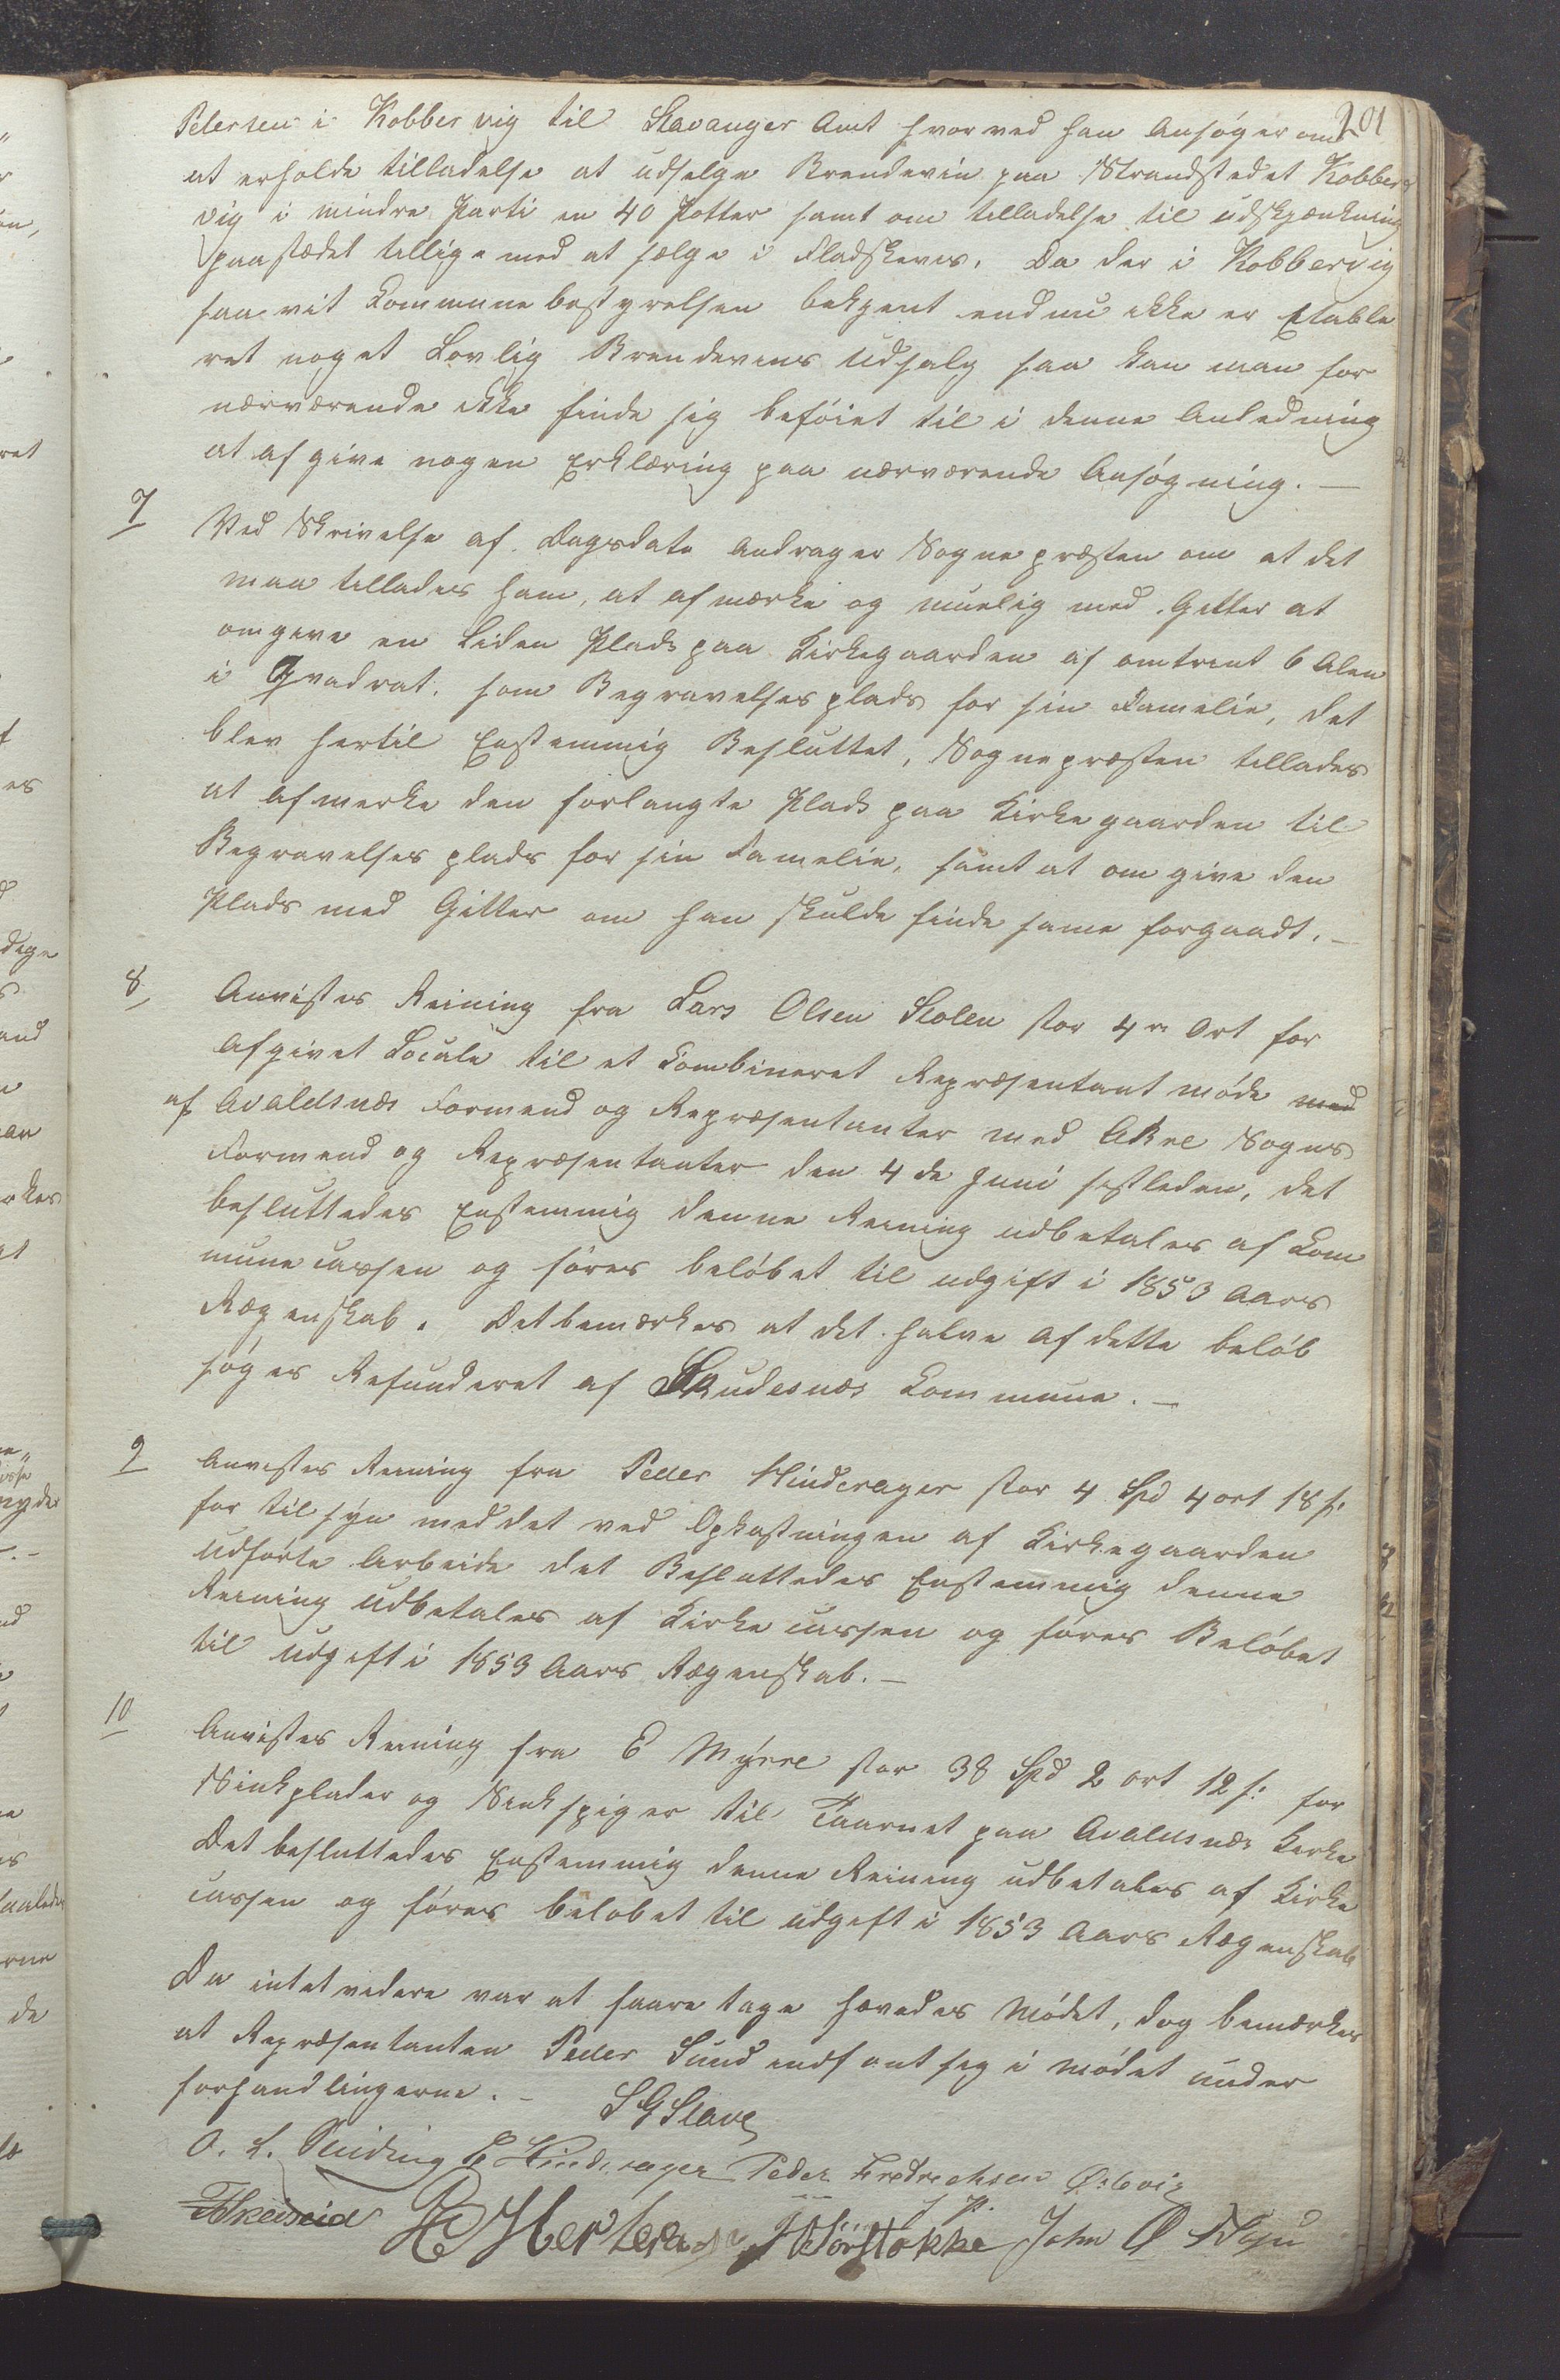 201
Petersen i Kobbervig til Stavanger Amt hvorved han Ansøger om
at erholde tilladelse at udselge Brendevin paa Strandstedet Kobber
vig i mindre Parti en 40 Potter samt om tilladelse til udskjænkning
paa stædet tillige med at sælge i Fladskevis. Da der i Kobbervig
saa vit Kommunebestyrelsen bekjent endnu ikke er Etable
ret noget Lovlig Brendevins Udsalg saa kan man for
nærværende ikke finde sig beføiet til i denne Anledning
at afgive nogen Erklæring paa nærværende Ansøgning. —
7 Ved Skrivelse af Dagsdato Andrager Sognepræsten om at det
maa tillades ham, at afmærke og muelig med Gitter at
omgive en Liden Plads paa Kirkegaarden af omtrent 6 Alen
i Qvadrat, som Begravelsesplads for sin Familie, det
blev hertil Enstemmig Besluttet, Sognepræsten tillades
at afmerke den forlangte Plads paa Kirkegaarden til
Begravelsesplads for sin Familie, samt at omgive den
Plads med Gitter om han skulde finde same forgaadt. —
8 Anvistes Reining fra Lars Olsen Stolen stor 4re Ort for
Afgivet Locale til et Kombineret Repræsentant møde med
af Avaldsnæs Formend og Repræsentanter med Akre Sogns
Formend og Repræsentanter den 4de Juni sistleden, det
besluttedes Enstemmig denne Reining udbetales af Kom
munecassen og føres beløbet til udgift i 1853 Aars
Regenskab. Det bemærkes at det halve af dette beløb
søges Refunderet af Skudesnæs Kommune. —
9 Anvistes Reining fra Peder Hinderager stor 4 Spd 4 ort 18 s:
for tilsyn med det ved Opkastningen af Kirkegaarden
udførte Arbeide det Besluttedes Enstemmig denne
Reining udbetales af Kirkecassen og føres Beløbet
til udgift i 1853 Aars Regenskab. —
10 Anvistes Reining fra E Myrre stor 38 Spd 2 ort 12 s: for
Sinkplader og Sinkspiger til Taarnet paa Avaldsnæs Kirke
Det besluttedes Enstemmig denne Reining udbetales af Kirke
cassen og føres beløbet til udgift i 1853 Aars Regenskab
Da intet videre var at foaretage hævedes Mødet, dog bemærkes
at Repræsentanten Peder Sund indfant sig i mødet under
forhandlingerne. — S G Stave
O. L. Sinding P Hinderager Peder Fredrichsen
J P Hertean J Størstokke John Ø